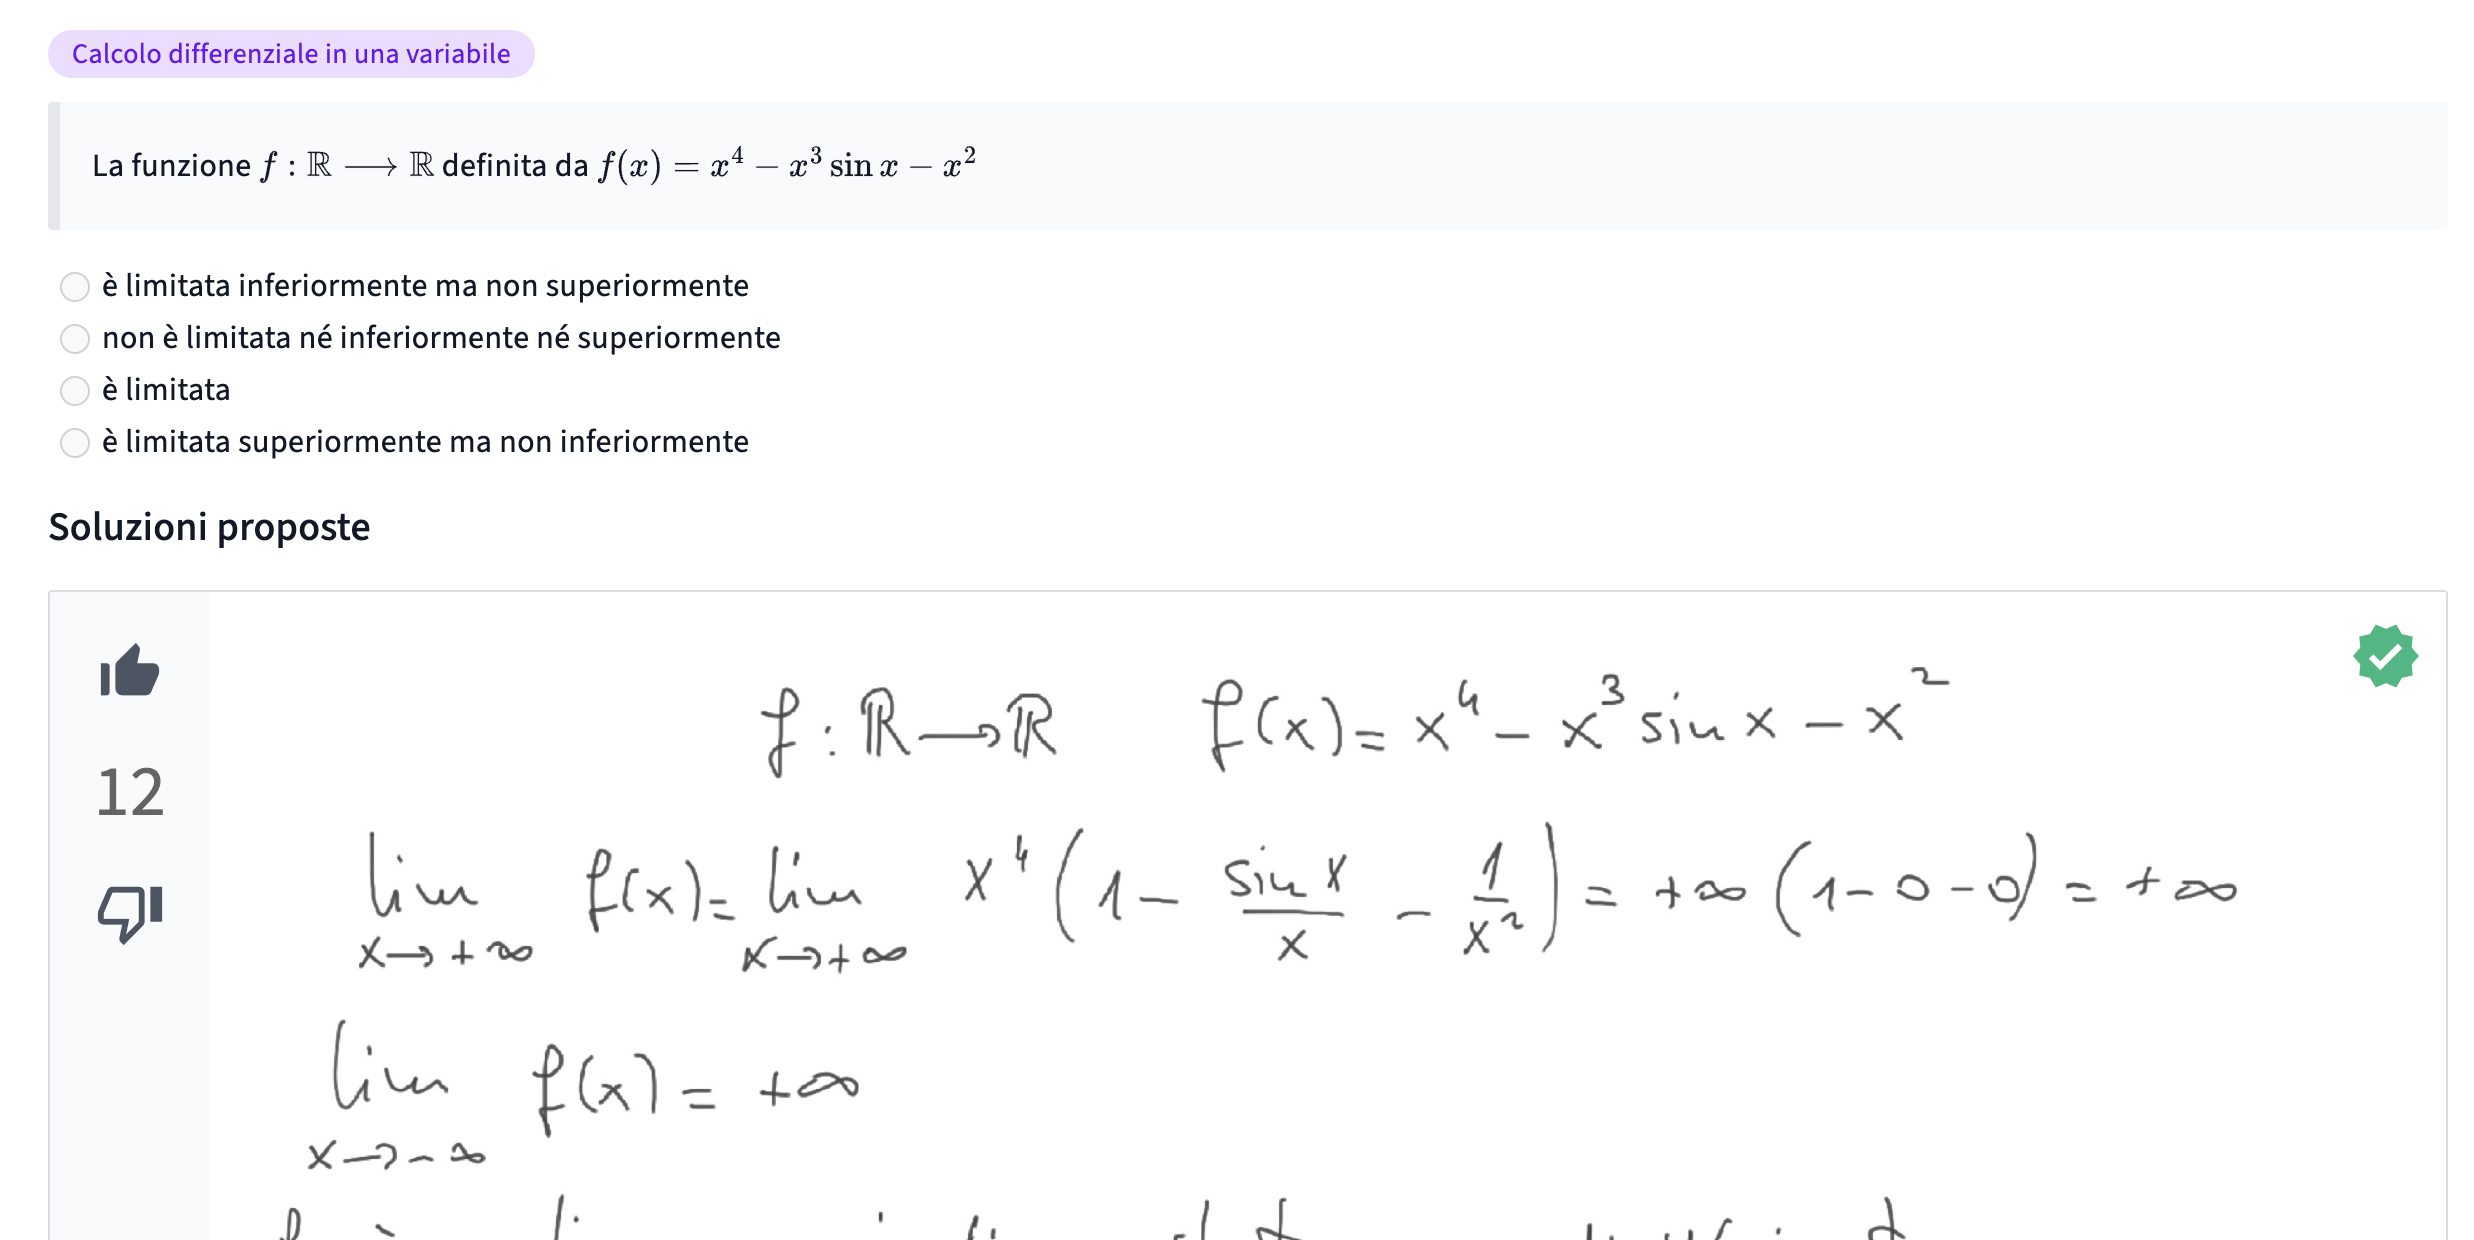 Calcolo differenziale in una variabile
La funzione f : ℝ ⟶ ℝ definita da f(x) = x⁴ − x³ sin x − x²
è limitata inferiormente ma non superiormente
non è limitata né inferiormente né superiormente
è limitata
è limitata superiormente ma non inferiormente
Soluzioni proposte
12
f : ℝ → ℝ f(x) = x⁴ − x³ sin x − x²
lim x→+∞ f(x) = lim x→+∞ x⁴ (1 − sin x / x − 1 / x²) = +∞ (1 − 0 − 0) = +∞
lim x→−∞ f(x) = +∞